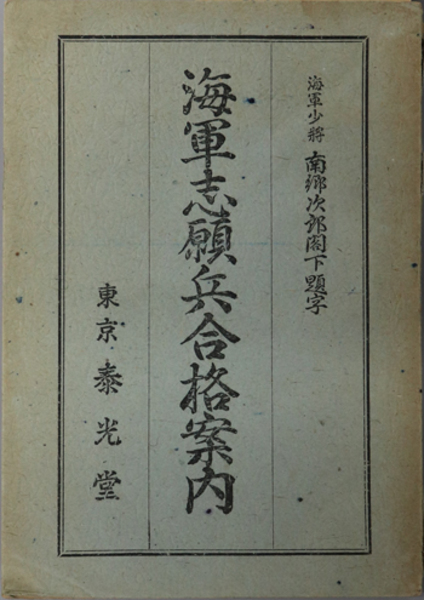 海軍少將 南郷次郎閣下題字
海軍志願兵合格案内
東京 泰光堂